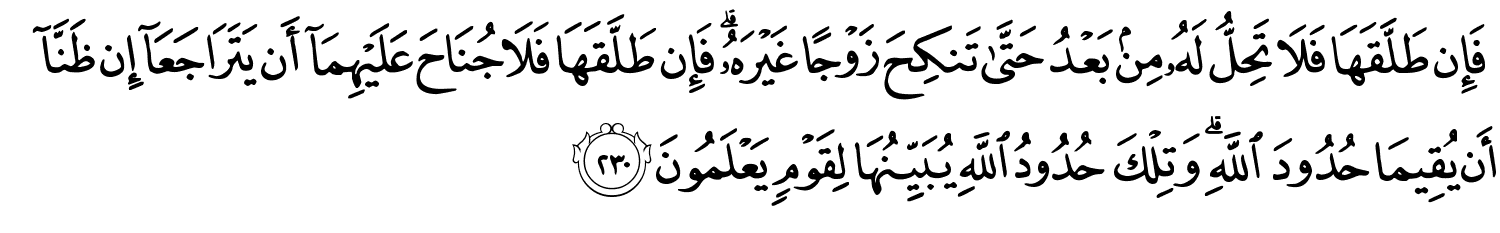 فَإِن طَلَّقَهَا فَلَا تَحِلُّ لَهُۥ مِنۢ بَعْدُ حَتَّىٰ تَنكِحَ زَوْجًا غَيْرَهُۥ ۗ فَإِن طَلَّقَهَا فَلَا جُنَاحَ عَلَيْهِمَآ أَن يَتَرَاجَعَآ إِن ظَنَّآ
أَن يُقِيمَا حُدُودَ ٱللَّهِ ۗ وَتِلْكَ حُدُودُ ٱللَّهِ يُبَيِّنُهَا لِقَوْمٍ يَعْلَمُونَ ٢٣٠